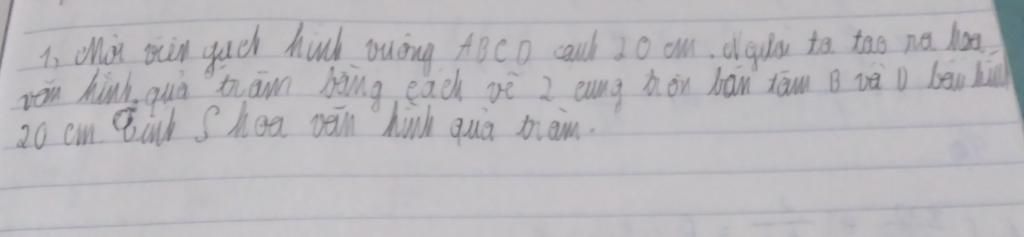 1, Một viên gạch hình vuông ABCD cạnh 20 cm. Người ta tạo ra hoa
văn hình quả trám bằng cách vẽ 2 cung tròn bán tâm B và D bán kính
20 cm. Tính S hoa văn hình quả trám.